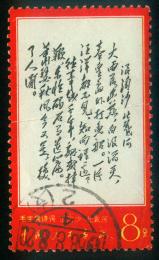 浪淘沙 北戴河
大雨落幽燕 白浪滔天
秦皇岛外打鱼船 一片
汪洋都不见 知向谁边
往事越千年 魏武挥
鞭 东临碣石有遗篇
萧瑟秋风今又是 换
了人间
毛主席诗词
北戴河
8分